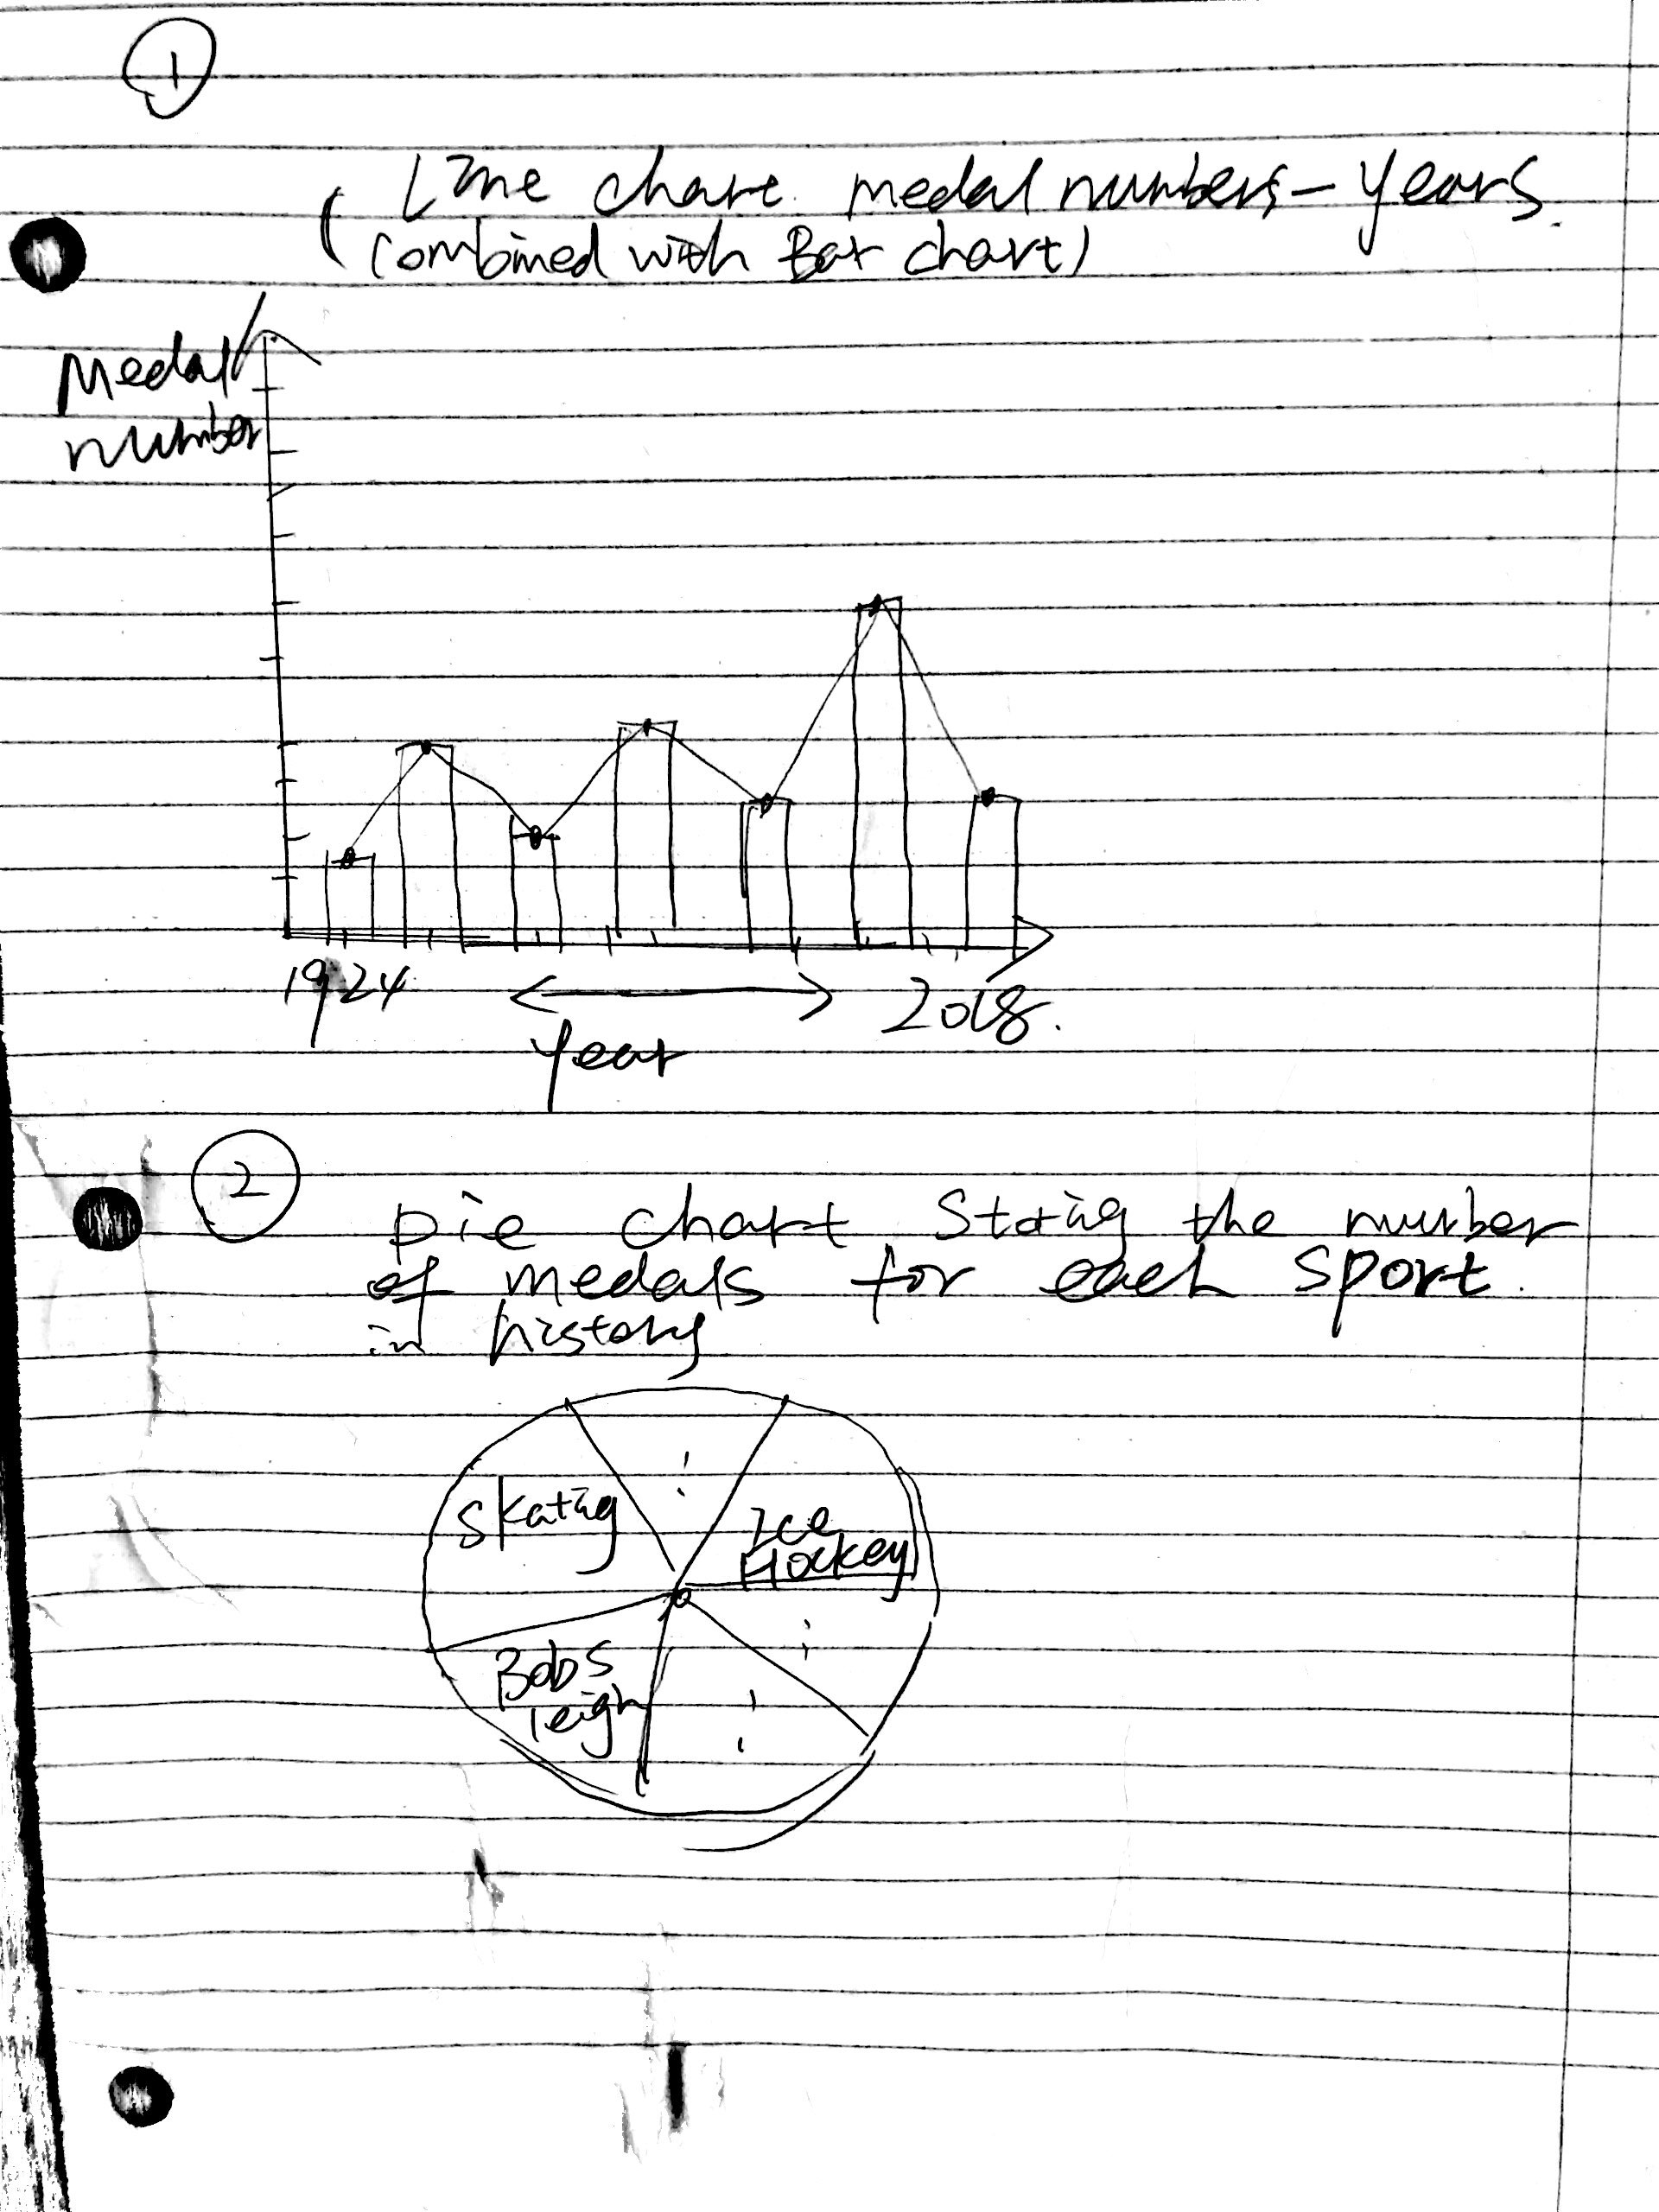 1
Line chart. medal numbers - years.
(combined with Bar chart)
Medal
number
1924
2018.
year
2
pie chart stating the number
of medals for each sport.
in history
Skating
Ice
Hockey
Bobs
leigh